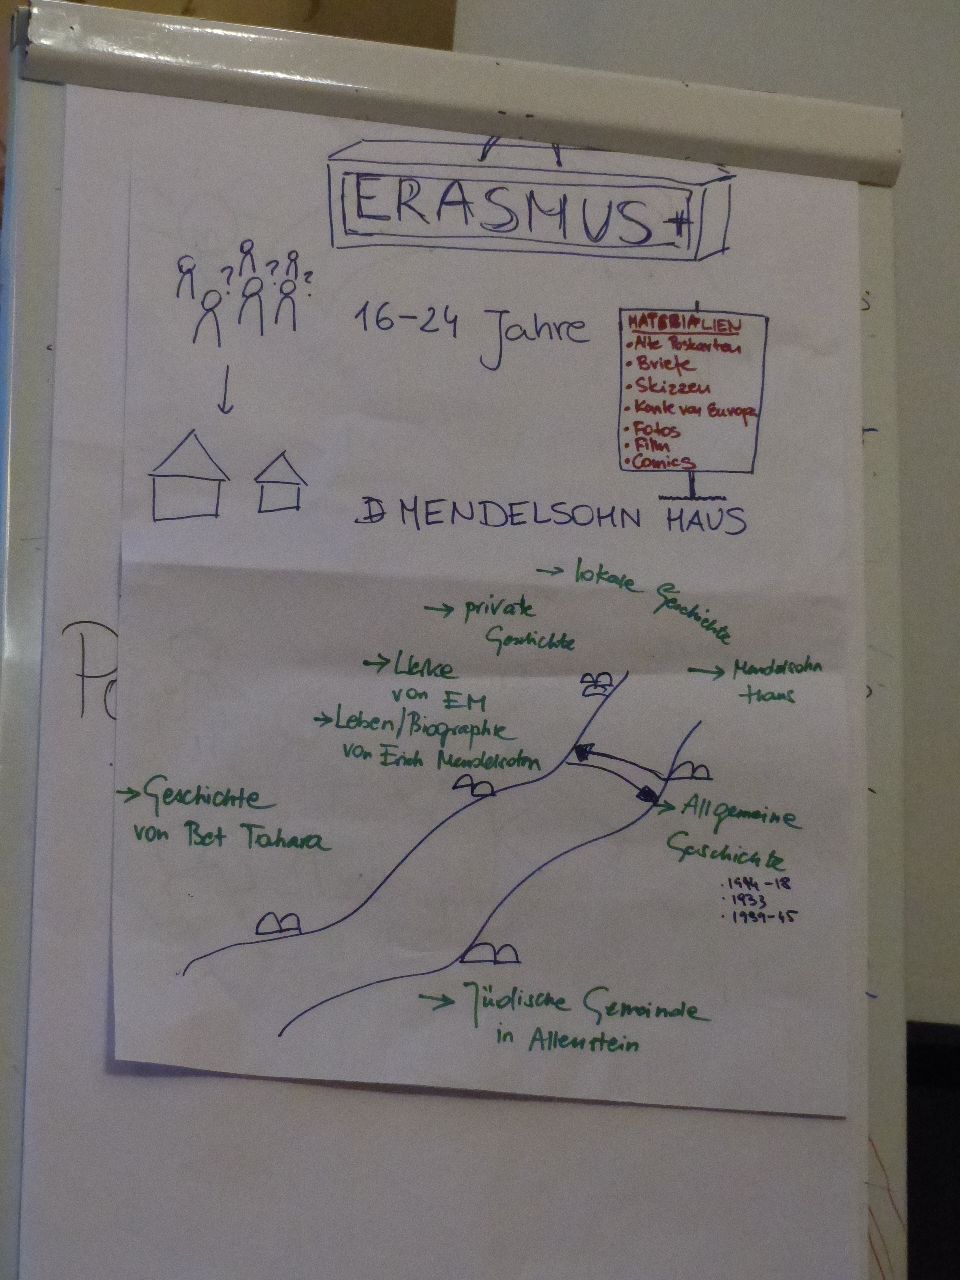 ERASMUS+
? ? ?
16-24 Jahre
MATERIALIEN
• Alte Poskarten
• Briefe
• Skizzen
• Karte von Europa
• Fotos
• Film
• Comics
MENDELSOHN HAUS
→ lokale Geschichte
→ private
Geschichte
→ Mendelsohn
Haus
→ Werke
von EM
→ Leben/Biographie
von Erich Mendelsohn
→ Geschichte
von Bet Tahara
→ Allgemeine
Geschichte
• 1914-18
• 1933
• 1939-45
→ Jüdische Gemeinde
in Allenstein